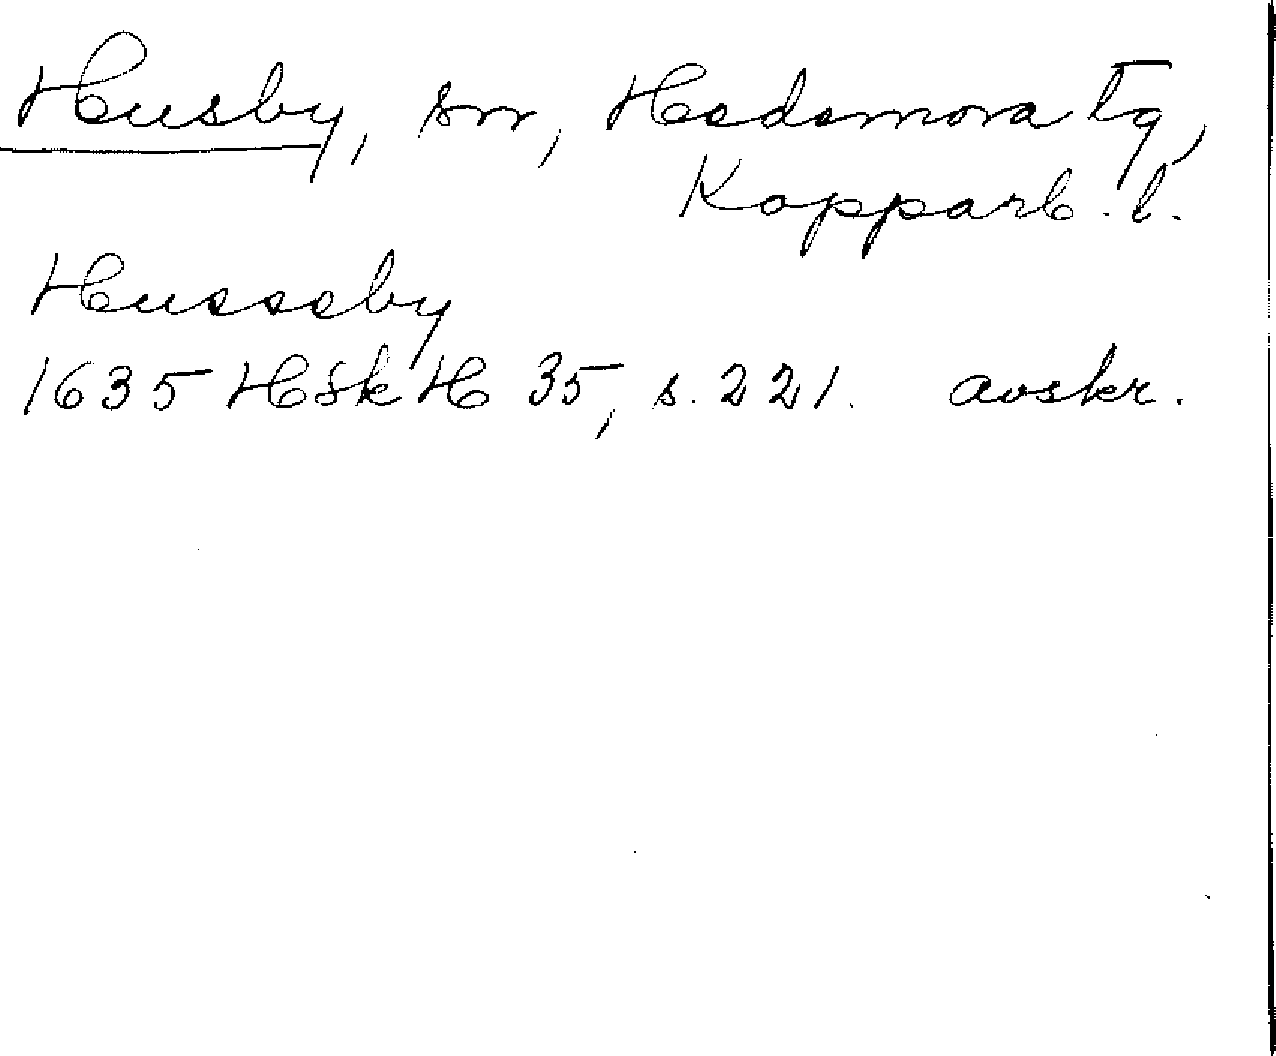 Husby, sn, Hedemora tg,
Kopparb. l.
Husseby
1635 HSkH 35, s. 221. avskr.